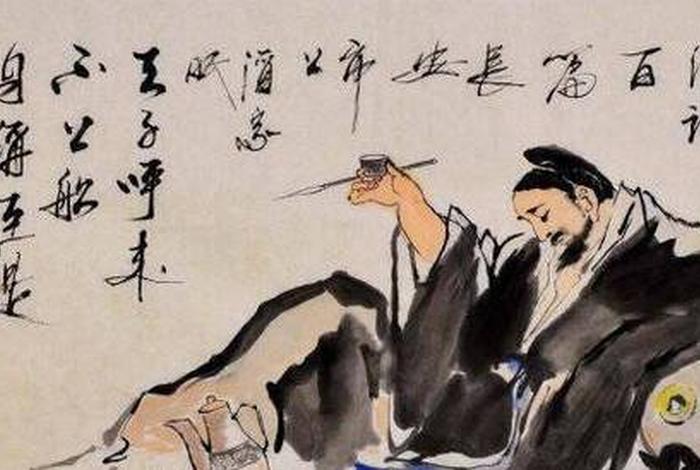 百
篇
長
安
市
上
酒家
眠
天子呼来
不上船
自稱臣是